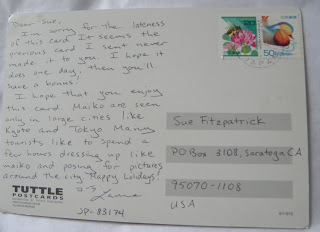 Dear Sue,
I'm sorry for the lateness
of this card. It seems the
previous card I sent never
made it to you. I hope it
does one day, then you'll
have a bonus!
I hope that you enjoy
this card. Maiko are seen
only in large cities like
Kyoto and Tokyo. Many
tourists like to spend a
few hours dressing up like
maiko and posing for pictures
around the city. Happy Holidays!
JP-83174
TUTTLE
POSTCARDS
120
50
Sue Fitzpatrick
PO Box 3108, Saratoga CA
95070-1108
USA